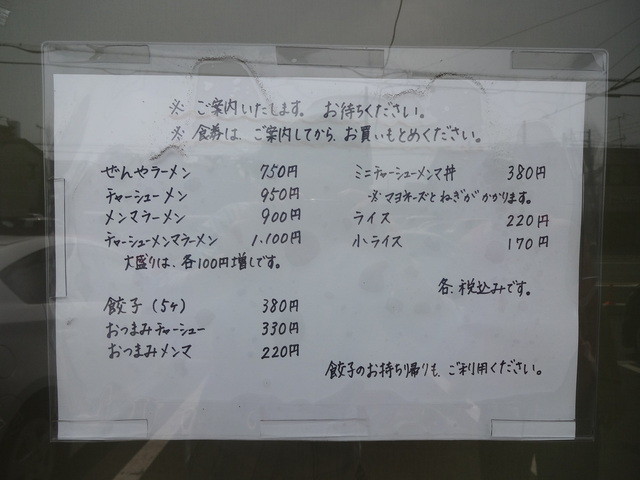 ※ ご案内いたします。 お待ちください。
※ 食券は、ご案内してから、お買いもとめください。
ぜんやラーメン 750円
チャーシューメン 950円
メンマラーメン 900円
チャーシューメンマラーメン 1.100円
大盛りは、各100円増しです。
餃子(5ヶ) 380円
おつまみチャーシュー 330円
おつまみメンマ 220円
ミニチャーシューメンマ丼 380円
※マヨネーズとねぎがかかります。
ライス 220円
小ライス 170円
各、税込みです。
餃子のお持ち帰りも、ご利用ください。